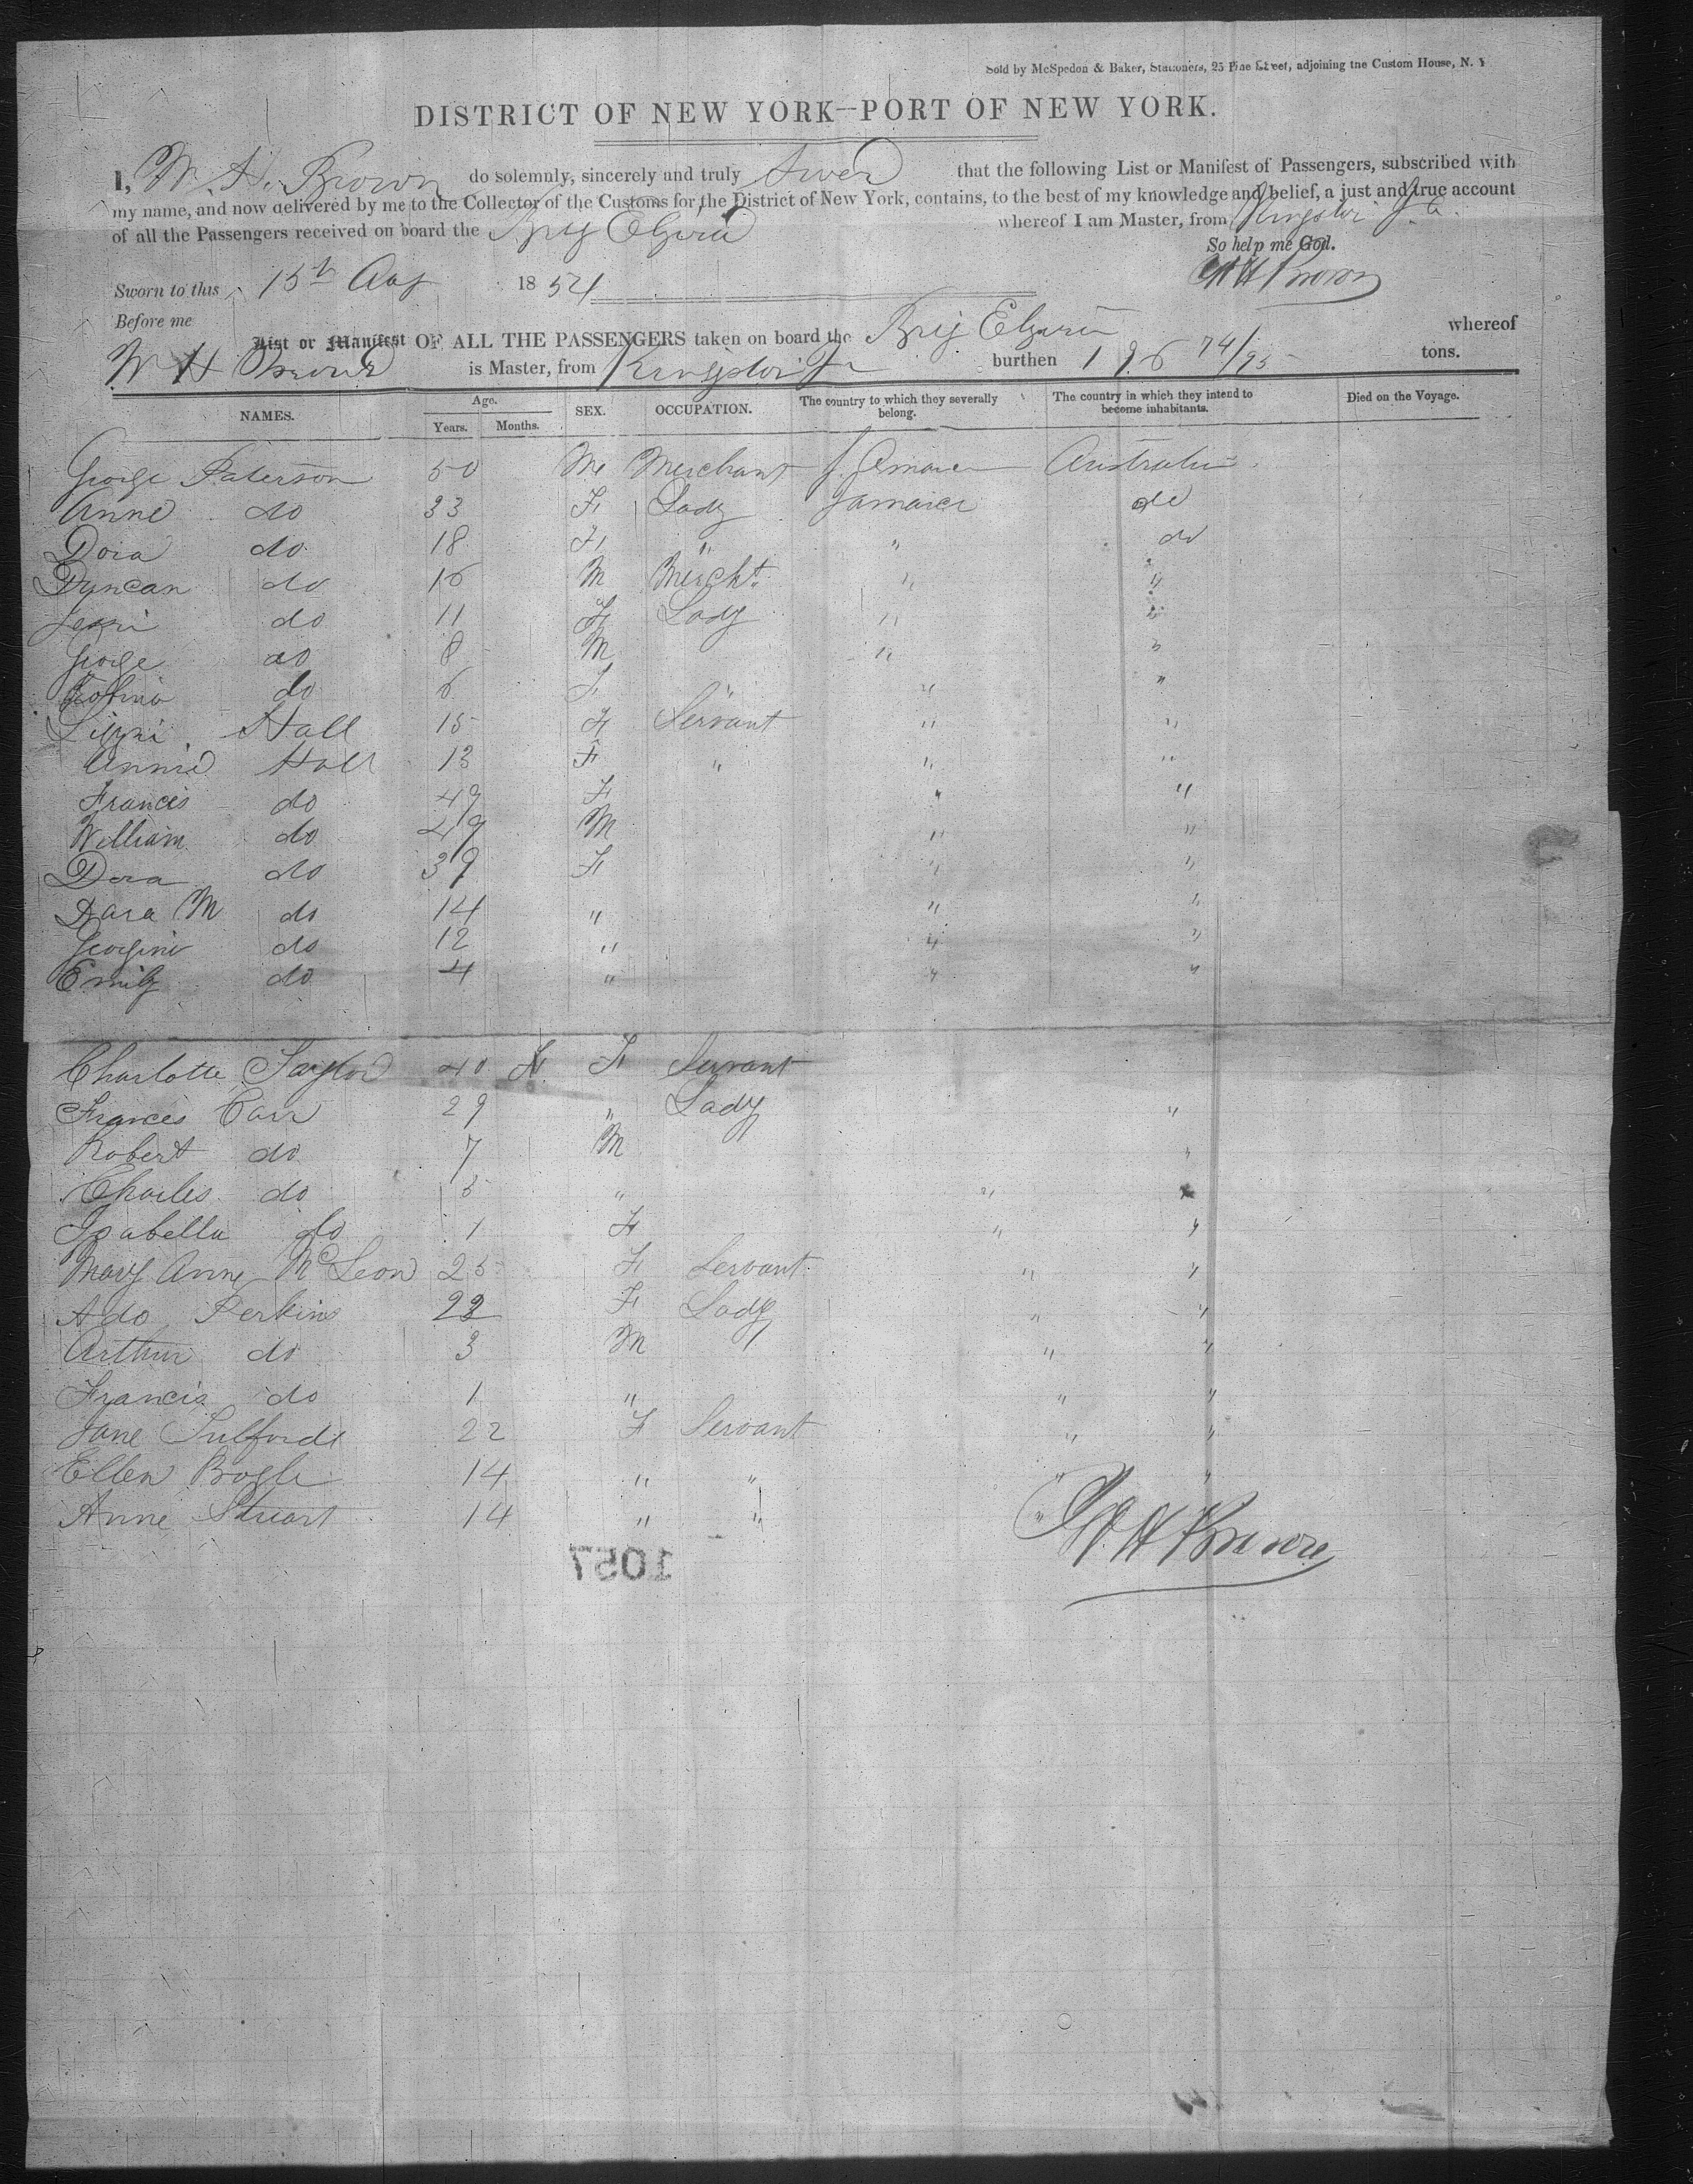 Sold by McSpedon & Baker, Stationers, 25 Pine Street, adjoining the Custom House, N. Y
DISTRICT OF NEW YORK—PORT OF NEW YORK.
I, W. H. Brown do solemnly, sincerely and truly swear that the following List or Manifest of Passengers, subscribed with
my name, and now delivered by me to the Collector of the Customs for the District of New York, contains, to the best of my knowledge and belief, a just and true account
of all the Passengers received on board the Brig whereof I am Master, from Kingston Ja.
So help me God.
W H Brown
Sworn to this 15th Aug 1854
Before me
List or Manifest OF ALL THE PASSENGERS taken on board the Brig whereof
W H Brown is Master, from Kingston Ja burthen 196 74/95 tons.
NAMES. Age. Years. Months. SEX. OCCUPATION. The country to which they severally belong. The country in which they intend to become inhabitants. Died on the Voyage.
George Paterson 50 M Merchant Jamaica Australia
Anne do 33 F Lady Jamaica do
Dora do 18 F " " do
Duncan do 16 M Mercht " "
Jessi do 11 F Lady " "
George do 8 M " "
do 6 F " " "
Lizzi Hall 15 F Servant " "
Annie Hall 13 F " " "
Francis do 49 F " "
William do 49 M " "
Dora do 39 F " "
M do 14 " " "
Georgine do 12 " " "
Emily do 4 " " "
Charlotte Taylor 40 F Servant
Frances Carr 29 " Lady "
Robert do 7 M "
Charles do 5 " " "
Isabella do 1 F " "
Mary Anne McLeon 25 F Servant " "
Ada Perkins 22 F Lady " "
Arthur do 3 M " "
Francis do 1 " " "
Jane 22 F Servant " "
Ellen Bogle 14 " " " "
Anne Stuart 14 " " "
W H Brown
1057